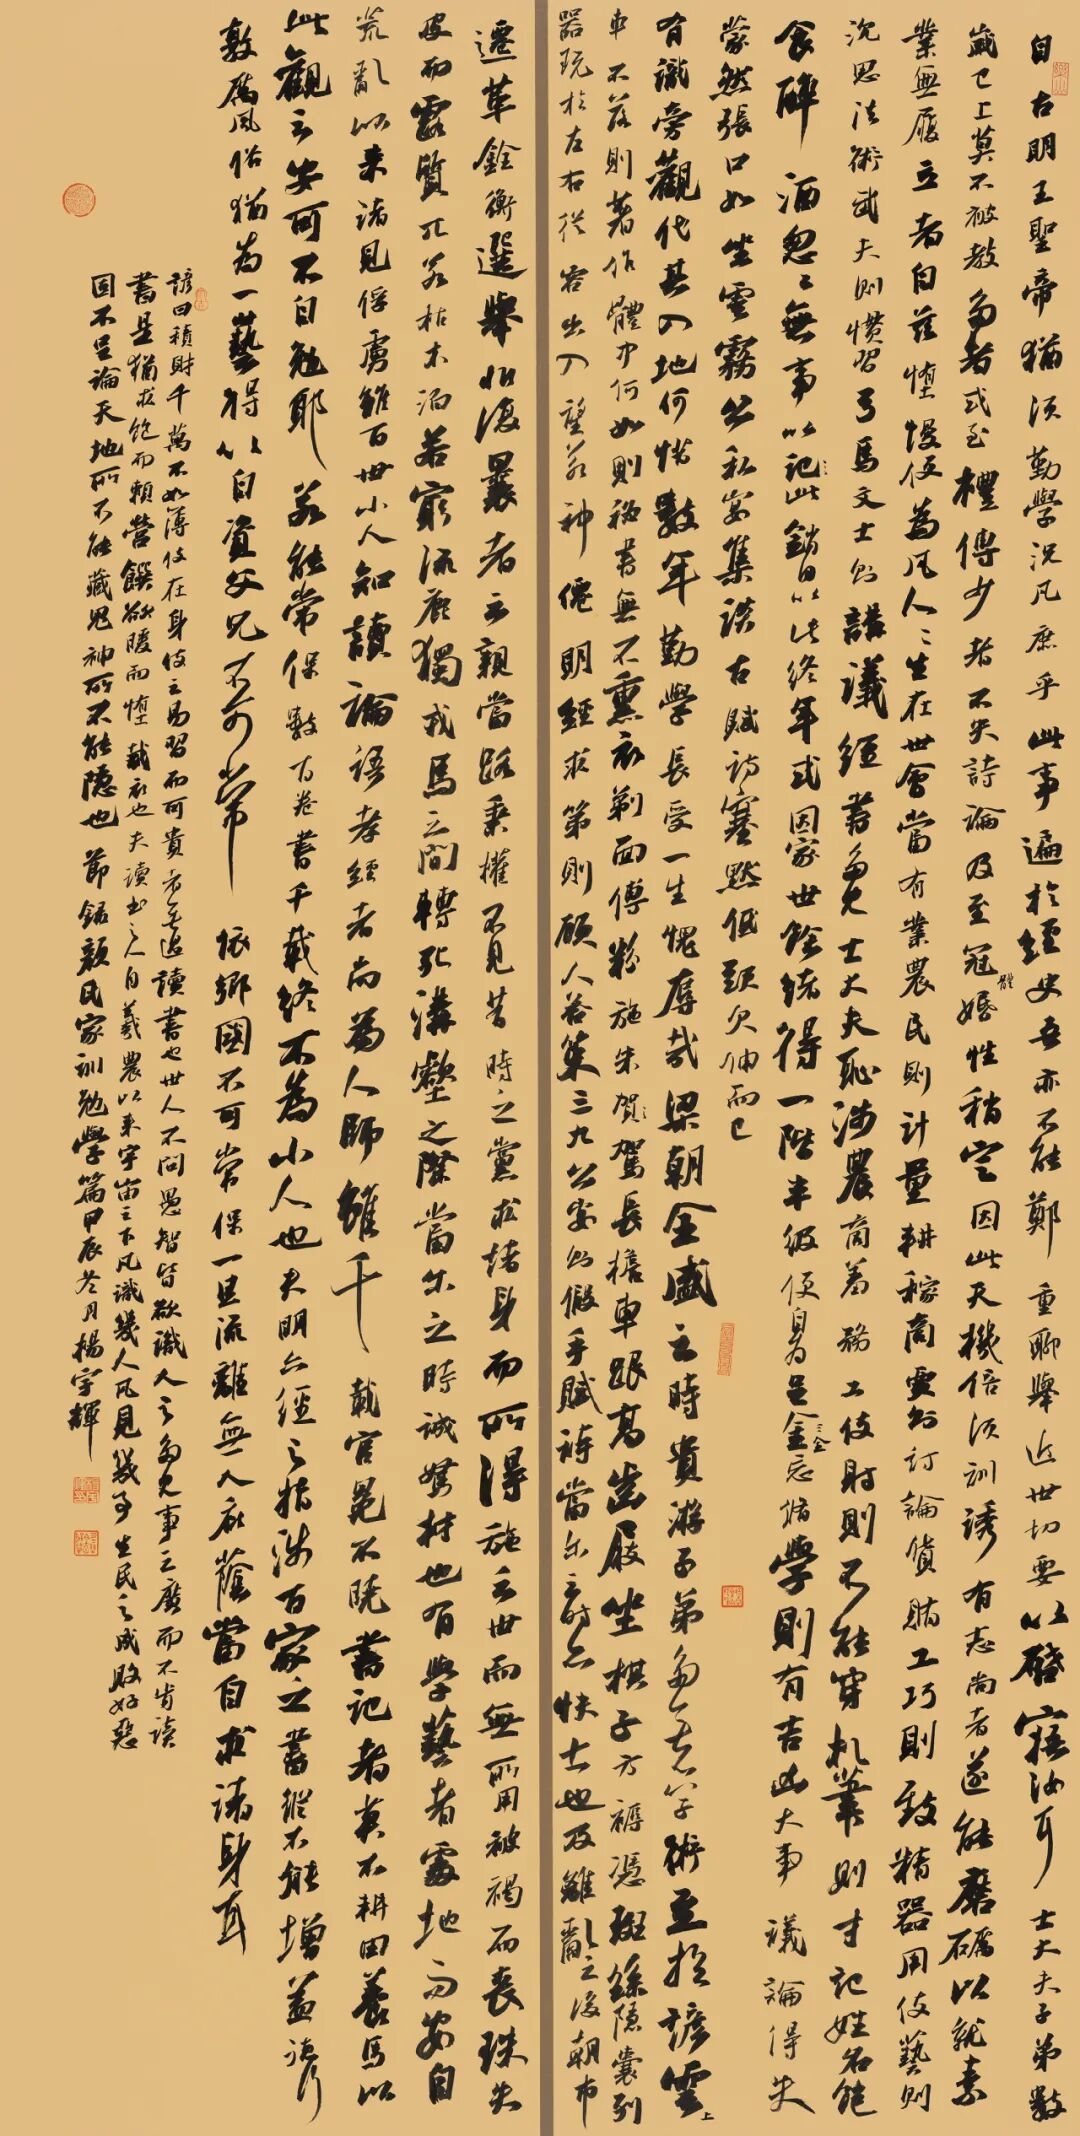 自古明王聖帝猶須勤學況凡庶乎此事遍於經史吾亦不能鄭重聊舉近世切要以啓寤汝耳士大夫子弟數
歲已上莫不被教多者或至禮傳少者不失詩論及至冠婚體性稍定因此天機倍須訓誘有志尚者遂能磨礪以就素
業無履立者自茲墮慢便為凡人人生在世會當有業農民則計量耕稼商賈則討論貨賄工巧則致精器用伎藝則
沉思法術武夫則慣習弓馬文士則講議經書多見士大夫恥涉農商羞務工伎射則不能穿札筆則才記姓名飽
食醉酒忽忽無事以記此銷日以此終年或因家世餘緒得一階半級便自為足全忘修學則有吉凶大事議論得失
蒙然張口如坐雲霧公私宴集談古賦詩塞默低頭欠伸而已
有識旁觀代其入地何惜數年勤學長受一生愧辱哉梁朝全盛之時貴游子弟多無學術至於諺雲上
車不落則著作體中何如則秘書無不熏衣剃面傅粉施朱駕長檐車跟高齒屐坐棋子方褥憑斑絲隱囊列
器玩於左右從容出入望若神僊明經求第則顧人答策三九公宴則假手賦詩當尔之時亦快士也及離亂之後朝市
遷革銓衡選舉非復曩者之親當路秉權不見昔時之黨求諸身而所得施之世而無所用被褐而喪珠失
皮而露質兀若枯木泊若窮流鹿獨戎馬之間轉死溝壑之際當尔之時誠駑材也有學藝者處地而安自
荒亂以来諸見俘虜雖百世小人知讀論語孝經者尚為人師雖千載官冕不曉書記者莫不耕田養馬以
此觀之安可不自勉耶若能常保數百卷書千載終不為小人也夫明六經之指涉百家之書縱不能增益德行
敦厲風俗猶為一藝得以自資父兄不可常依鄉國不可常保一旦流離無人庇蔭當自求諸身耳
諺曰積財千萬不如薄伎在身伎之易習而可貴者無過讀書也世人不問愚智皆欲識人之多見事之廣而不肯讀
書是猶求飽而賴營饌欲暖而墮裁衣也夫讀書之人自羲農以来宇宙之下凡識幾人凡見幾事生民之成敗好惡
固不足論天地所不能藏鬼神所不能隱也節錄顏氏家訓勉學篇甲辰冬月楊宇輝